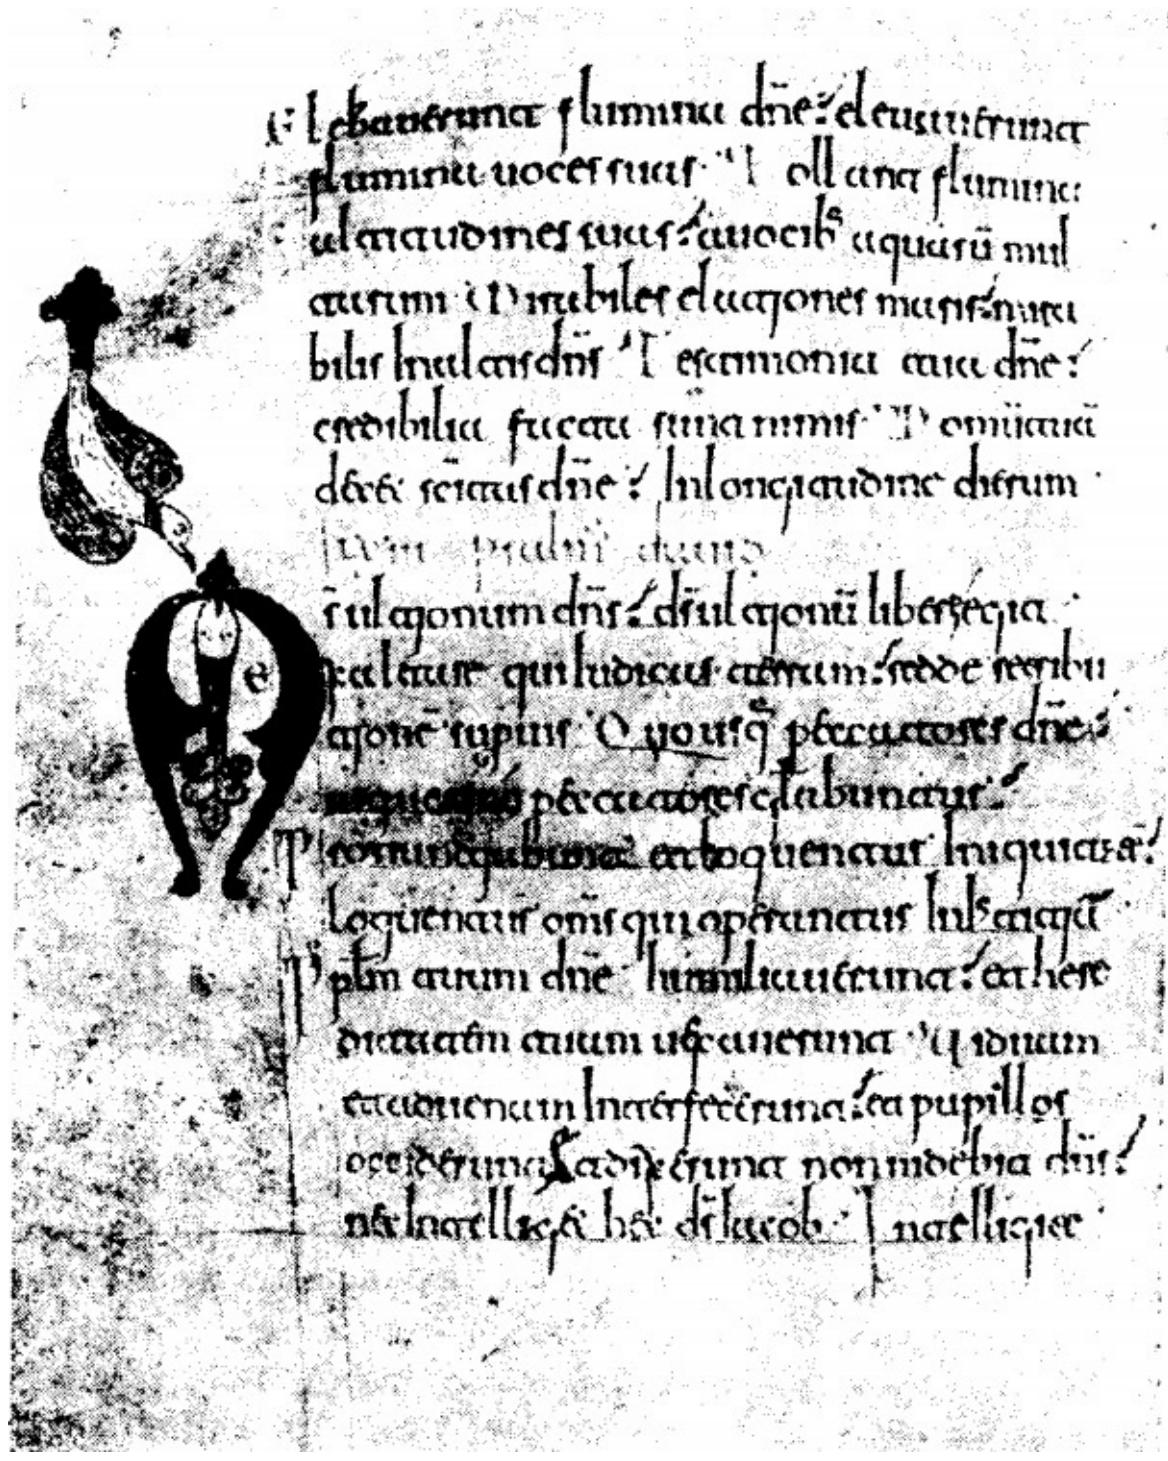 Elebauerunt flumina dñe? eleuauerunt
flumina uoces suas· Tollant flumina
altitudines suas? auocib; aquarū mul
tarum Mirabiles elationes maris? mira
bilis Inaltis dñs Testimonia tua dñe?
credibilia facta sunt nimis· Domū tuā
decet sc̄itas dñe? Inlongitudine dierum·
psalm dauid
D s̄ ultionum dñs? ds̄ ultionū libere egit·
Exaltare qui Iudicas terram? redde retribu
tionē supuis Quousq; peccatores dñe?
peccatores glabuntur?
Pronuntiabunt et loquentur Iniquitatē?
loquentur oms qui operantur
Pplm tuum dñe humiliauerunt? et here
ditatem tuam uexauerunt Uiduam
et aduenam Interfecerunt? et pupillos
occiderunt Et dixerunt non uidebit dñs?
nec Intelliget ds̄ Iacob· Intelligite·